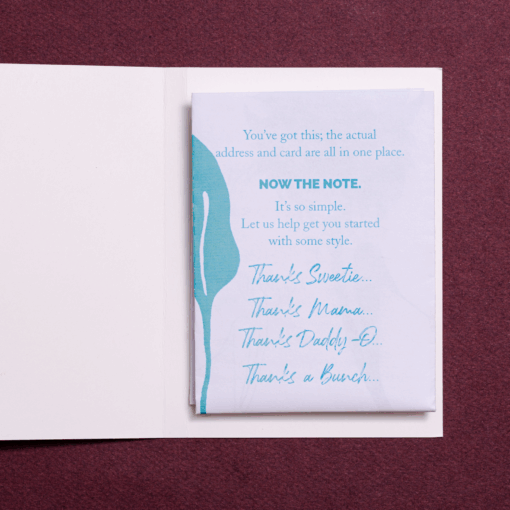 You've got this; the actual
address and card are all in one place.
NOW THE NOTE.
It's so simple.
Let us help get you started
with some style.
Thanks Sweetie...
Thanks Mama...
Thanks Daddy-O...
Thanks a Bunch...